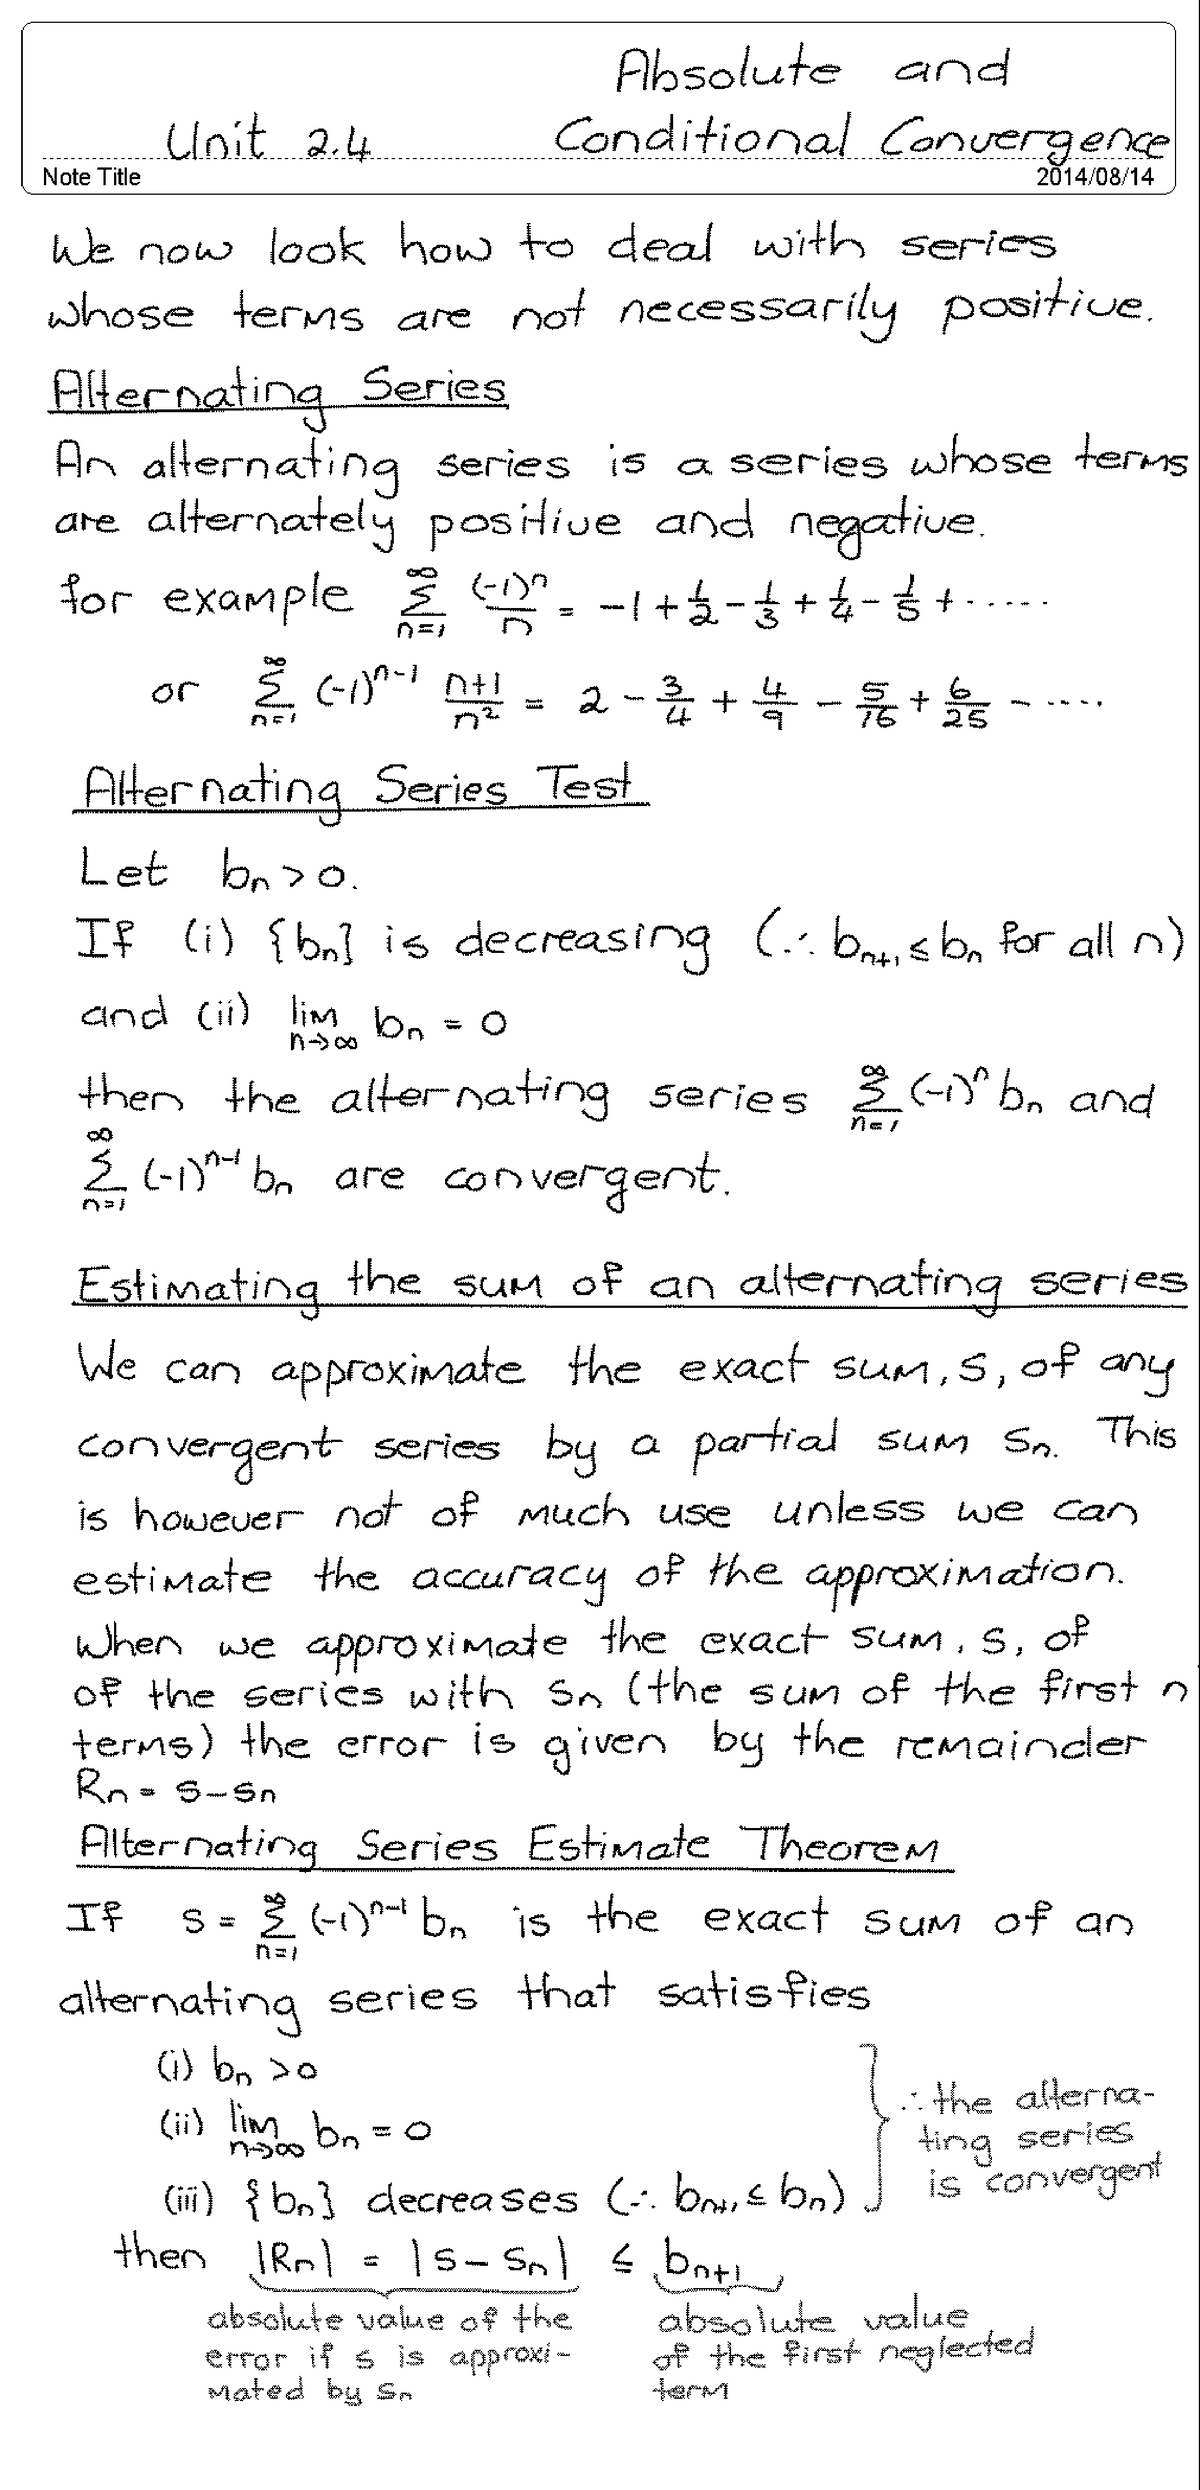 Absolute and
Unit 2.4 Conditional Convergence
Note Title 2014/08/14
We now look how to deal with series
whose terms are not necessarily positive.
Alternating Series
An alternating series is a series whose terms
are alternately positive and negative.
for example ∞∑n=1 (-1)^n/n = -1 + 1/2 - 1/3 + 1/4 - 1/5 + ......
or ∞∑n=1 (-1)^(n-1) (n+1)/n² = 2 - 3/4 + 4/9 - 5/16 + 6/25 - ....
Alternating Series Test
Let bn > 0.
If (i) {bn} is decreasing (∴ bn+1 ≤ bn for all n)
and (ii) lim n→∞ bn = 0
then the alternating series ∞∑n=1 (-1)^n bn and
∞∑n=1 (-1)^(n-1) bn are convergent.
Estimating the sum of an alternating series
We can approximate the exact sum, s, of any
convergent series by a partial sum sn. This
is however not of much use unless we can
estimate the accuracy of the approximation.
When we approximate the exact sum, s, of
of the series with sn (the sum of the first n
terms) the error is given by the remainder
Rn = s-sn
Alternating Series Estimate Theorem
If s = ∞∑n=1 (-1)^(n-1) bn is the exact sum of an
alternating series that satisfies
(i) bn > 0
(ii) lim n→∞ bn = 0
(iii) {bn} decreases (∴ bn+1 ≤ bn)
∴ the alterna-
ting series
is convergent
then |Rn| = |s - sn| ≤ bn+1
absolute value of the
error if s is approxi-
mated by sn
absolute value
of the first neglected
term